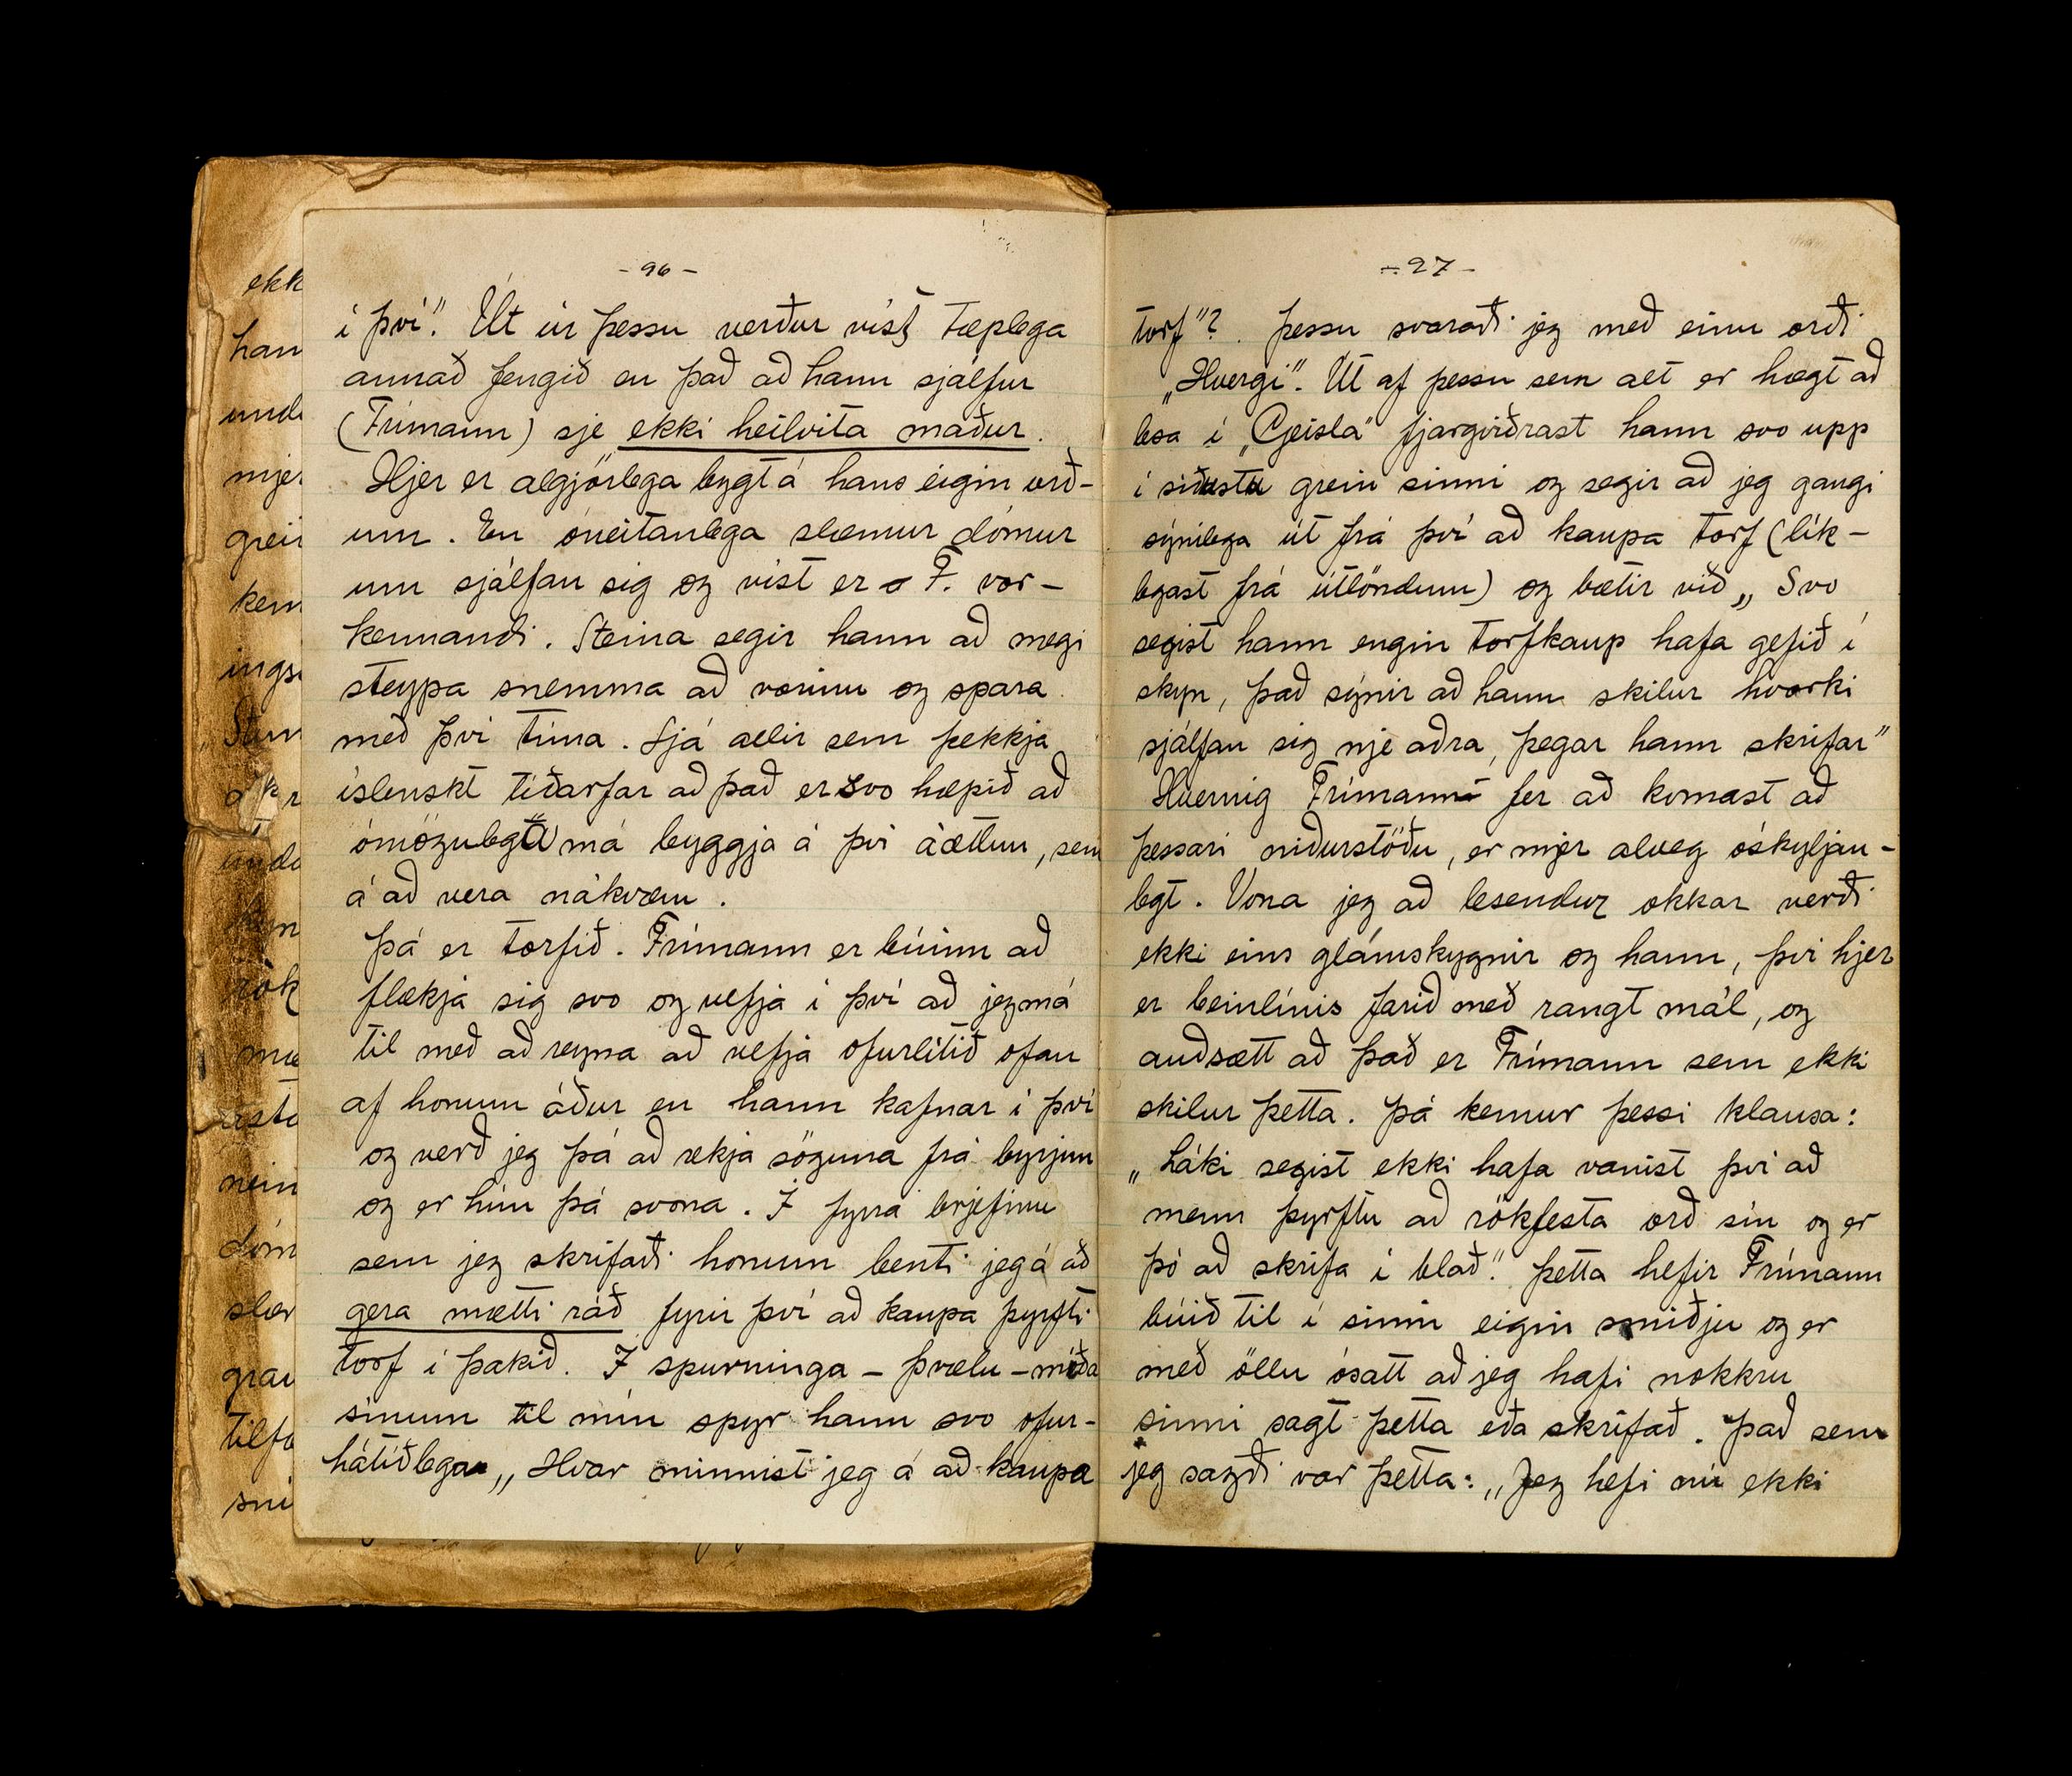 - 96 -
í því". Út úr þessu verður víst tæplega
annað fengið en það að hann sjálfur
(Frímann) sje ekki heilvita maður.
Hjer er algjörlega bygt á hans eigin orð-
um. En óneitanlega slæmur dómur
um sjálfan sig og víst er F. vor-
kennandi. Steina segir hann að megi
steypa snemma að vorinu og spara
með því tíma. Sjá allir sem þekkja
íslenskt tíðarfar að það er svo hæpið að
ómögulegt má byggja á því áætlun, sem
á að vera nákvæm.
Þá er torfið. Frímann er búinn að
flækja sig svo og vefja í því að jeg má
til með að reyna að vefja ofurlítið ofan
af honum áður en hann kafnar í því
og verð jeg þá að rekja söguna frá byrjun
og er hún þá svona. Í fyrra brjefinu
sem jeg skrifaði honum benti jeg á að
gera mætti ráð fyrir því að kaupa þyrfti
torf í þakið. Í spurninga - þvælu - miða
sínum til mín spyr hann svo ofur-
hátíðlega „Hvar minnist jeg á að kaupa
- 27 -
torf"? Þessu svaraði jeg með einu orði
„Hvergi". Út af þessu sem alt er hægt að
lesa í „Geisla" fjargviðrast hann svo upp
í síðustu grein sinni og segir að jeg gangi
sýnilega út frá því að kaupa torf (lík-
legast frá útlöndum) og bætir við „Svo
segist hann engin torfkaup hafa gefið í
skyn, það sýnir að hann skilur hvorki
sjálfan sig nje aðra, þegar hann skrifar"
Hvernig Frímann fer að komast að
þessari niðurstöðu, er mjer alveg óskyljan-
legt. Vona jeg að lesendur okkar verði
ekki eins glámskygnir og hann, því hjer
er beinlínis farið með rangt mál, og
auðsætt að það er Frímann sem ekki
skilur þetta. Þá kemur þessi klausa:
„Láki segist ekki hafa vanist því að
menn þyrftu að rökfesta orð sín og er
þó að skrifa í blað". Þetta hefir Frímann
búið til í sinni eigin smiðju og er
með öllu ósatt að jeg hafi nokkru
sinni sagt þetta eða skrifað. Það sem
jeg sagði var þetta: „Jeg hefi nú ekki